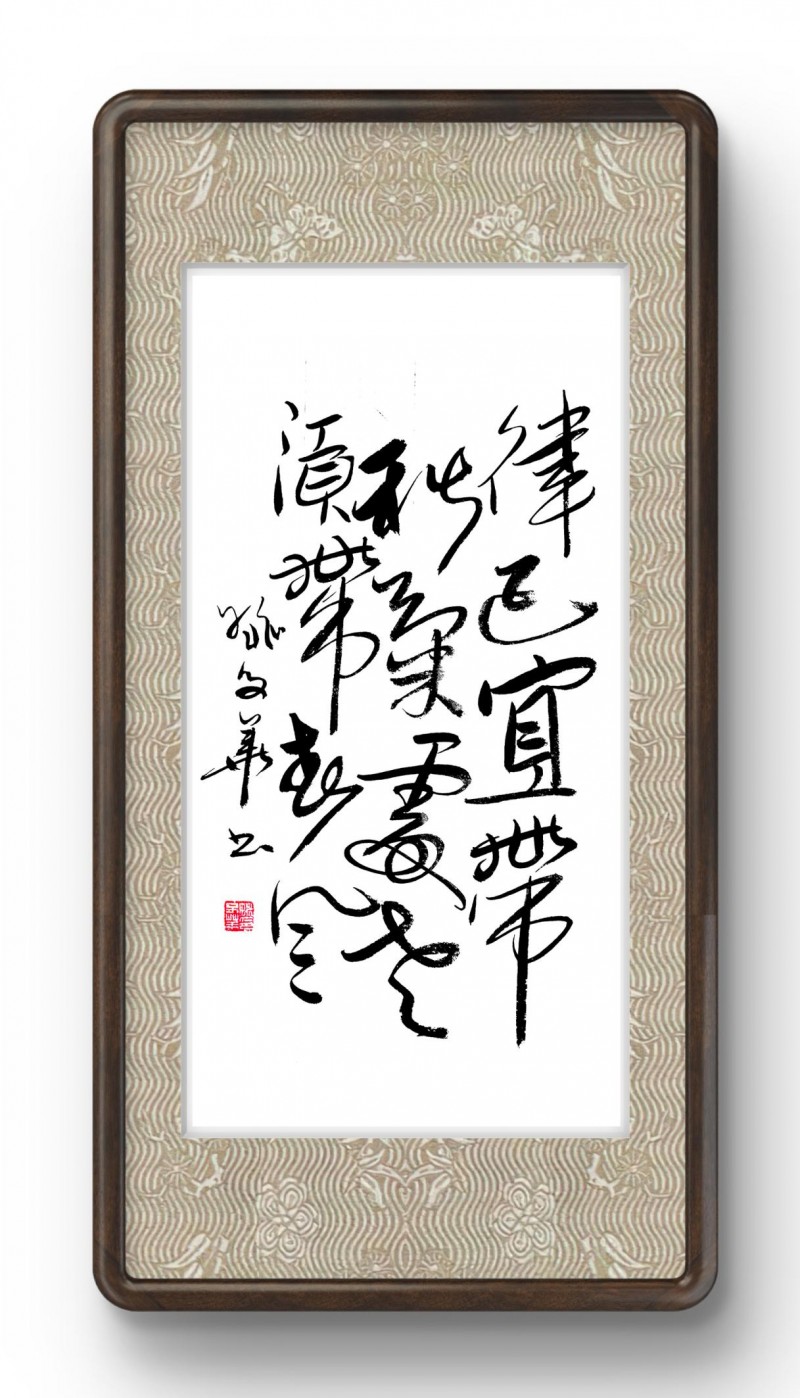 律己宜帶
秋氣處世
須帶春風
孫文華书